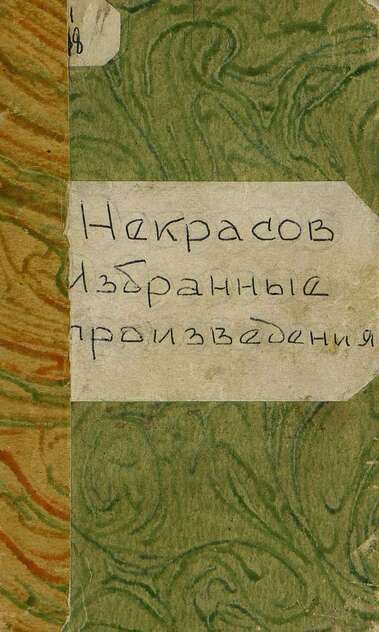 Некрасов
Избранные
произведения